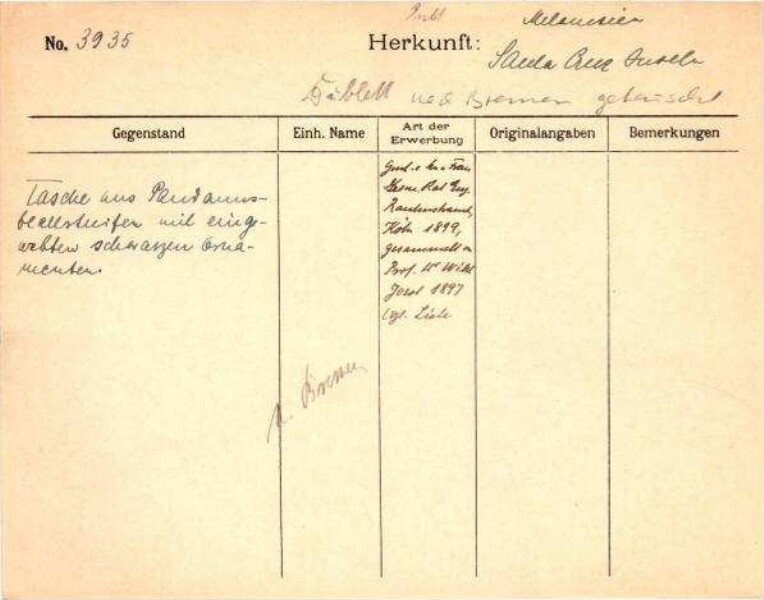 Melanesien
No. 3935 Herkunft: Santa Cruz Inseln
Dublett nach Bremen getauscht
Gegenstand Einh. Name Art der Erwerbung Originalangaben Bemerkungen
Tasche aus Pandanus-
blattstreifen mit einge-
webten schwarzen Orna-
menten.
Gesch. v. Frau
Geh. Rat Eug.
Rautenstrauch,
Köln 1899,
gesammelt v.
Prof. Dr Wilh.
Joest 1897
vgl. Liste
n. Bremen